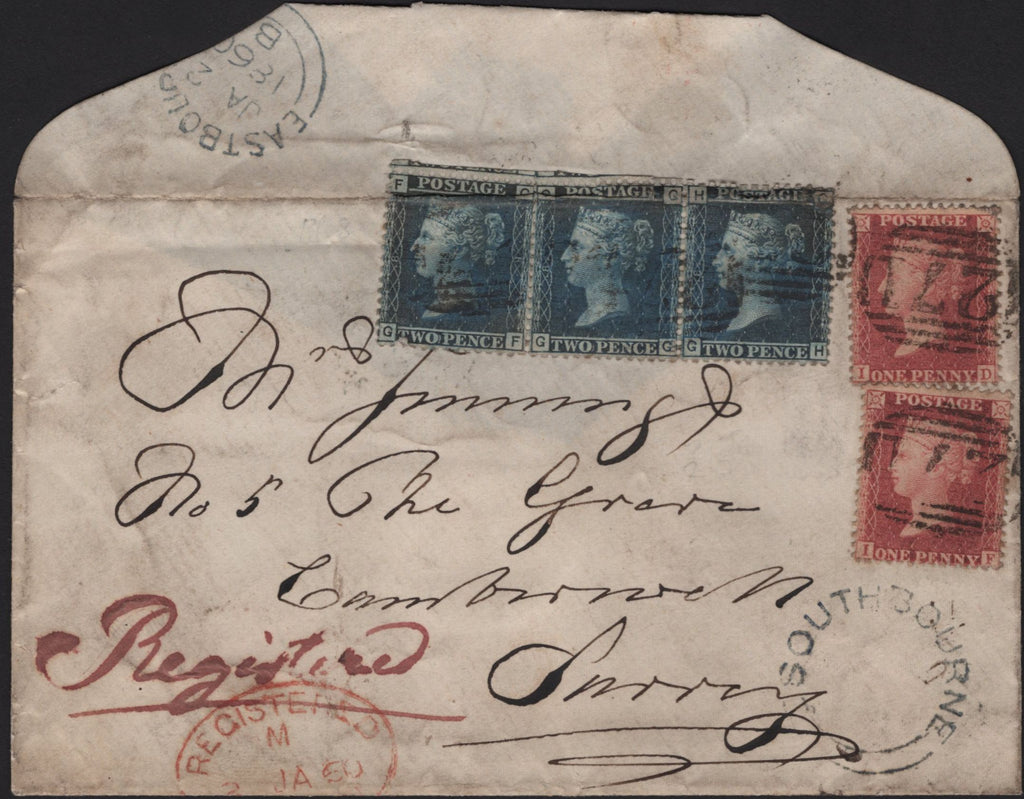 EASTBOURNE
JA 3
1860
F POSTAGE G G POSTAGE G H POSTAGE G
G TWO PENCE F G TWO PENCE G G TWO PENCE H
POSTAGE
271
I ONE PENNY D
POSTAGE
I ONE PENNY F
Mrs Jennings
No 5 The Grove
Camberwell
Surrey
Registered
REGISTERED
M
3 JA 60
SOUTHBOURNE